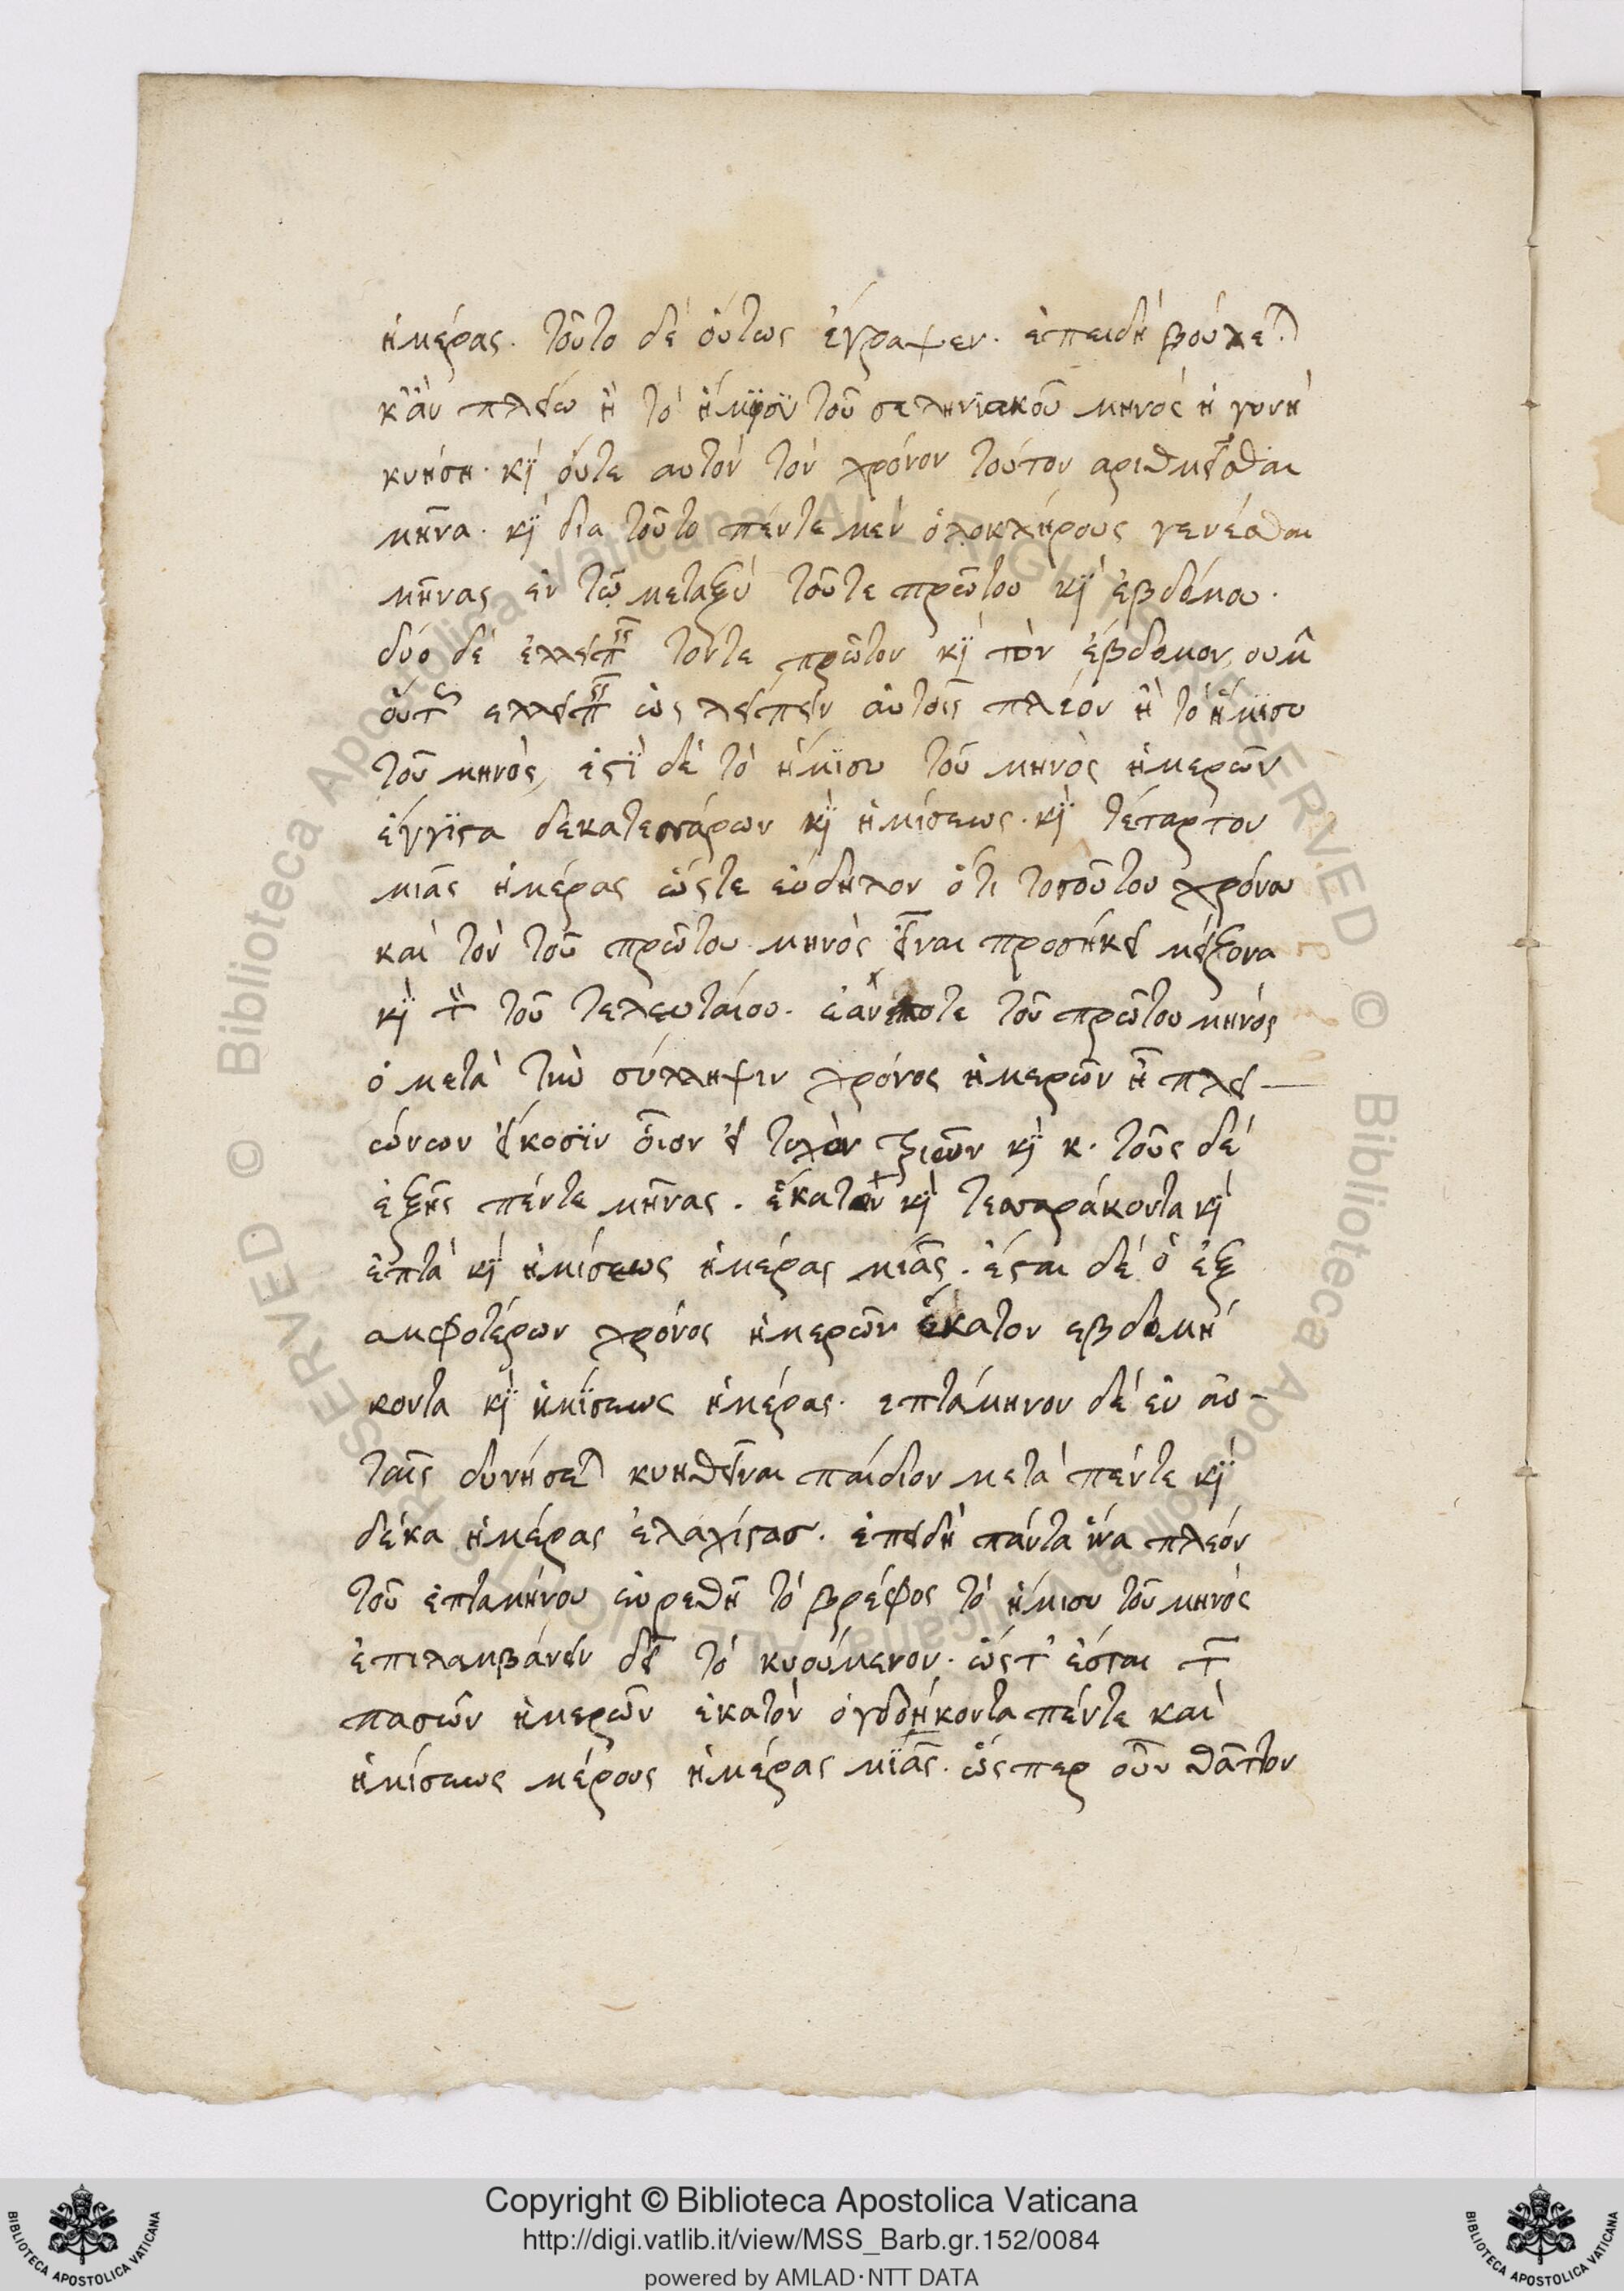 ἡμέρας. τοῦτο δὲ οὕτως ἔγραψεν. ἐπειδὴ βούλεται
κἂν πλείω ἢ τὸ ἥμϊσϋ τοῦ σεληνϊακοῦ μηνὸς ἡ γυνὴ
κυήσῃ. κϳ οὔτε αυτὸν τὸν χρόνον τοῦτον αριθμεῖσθαι
μῆνα. κϳ δια τοῦτο πέντε μὲν ὁλοκλήρους γενέσθαι
μῆνας ἐν τῶ μεταξὺ τοῦτε πρώτου κϳ ἑβδόμου.
δύο δὲ ἐλλειπεῖς τόντε πρῶτον κϳ τὸν ἕβδομον,
οὕτως ελλειπεῖς ὡς λείπειν αὐτοῖς πλέον ἢ τὸ ἥμϊσυ
τοῦ μηνὸς, ἐστϊ δὲ τὸ ἥμϊσυ τοῦ μηνὸς ἡμερῶν
ἔγγϊστα δεκατεσσάρων κϳ ἡμίσεως. κϳ τέταρτον
μιᾶς ἡμέρας ὥστε εὔδηλον ὅτι τοσούτου χρόνου
καὶ τὸν τοῦ πρώτου μηνὸς εἶναι προσήκει μείζονα
κϳ τὸν τοῦ τελευταίου. ἐὰν ποτε τοῦ πρώτου μηνὸς
ὁ μετὰ τὴν σύλληψιν χρόνος ἡμερῶν ἦ πλει-
όνων εἴκοσϊν οἷον εἰ τυχὸν τριῶν κϳ κ. τοὺς δὲ
ἑξῆς πέντε μῆνας. ἑκατὸν κϳ τεσσαράκοντα κϳ
ἑπτὰ κϳ ἡμίσεως ἡμέρας μιᾶς. ἔσται δὲ ὁ ἐξ
αμφοτέρων χρόνος ἡμερῶν ἑκατον εβδομή
κοντα κϳ ἡμϊσεως ἡμέρας. επτάμηνον δὲ ἐν αὐ-
ταῖς δυνήσεται κυηθῆναι παίδίον μετὰ πέντε κϳ
δέκα ἡμέρας ἐλαχίστασ. ἐπειδὴ πάντα ἵνα πλεόν
τοῦ ἑπταμήνου εὑρεθῆ τὸ βρέφος τὸ ἥμισυ τοῦ μηνὸς
ἐπιλαμβάνειν δεῖ τὸ κυούμενον. ὥστ' ἔσται τῶν
πασῶν ἡμερῶν ἑκατὸν ὀγδοήκοντα πέντε καὶ
ἡμίσεως μέρους ἡμέρας μϊᾶς. ὥσπερ οὖν θᾶττον
Copyright © Biblioteca Apostolica Vaticana
http://digi.vatlib.it/view/MSS_Barb.gr.152/0084
powered by AMLAD·NTT DATA
BIBLIOTECA APOSTOLICA VATICANA
BIBLIOTECA APOSTOLICA VATICANA